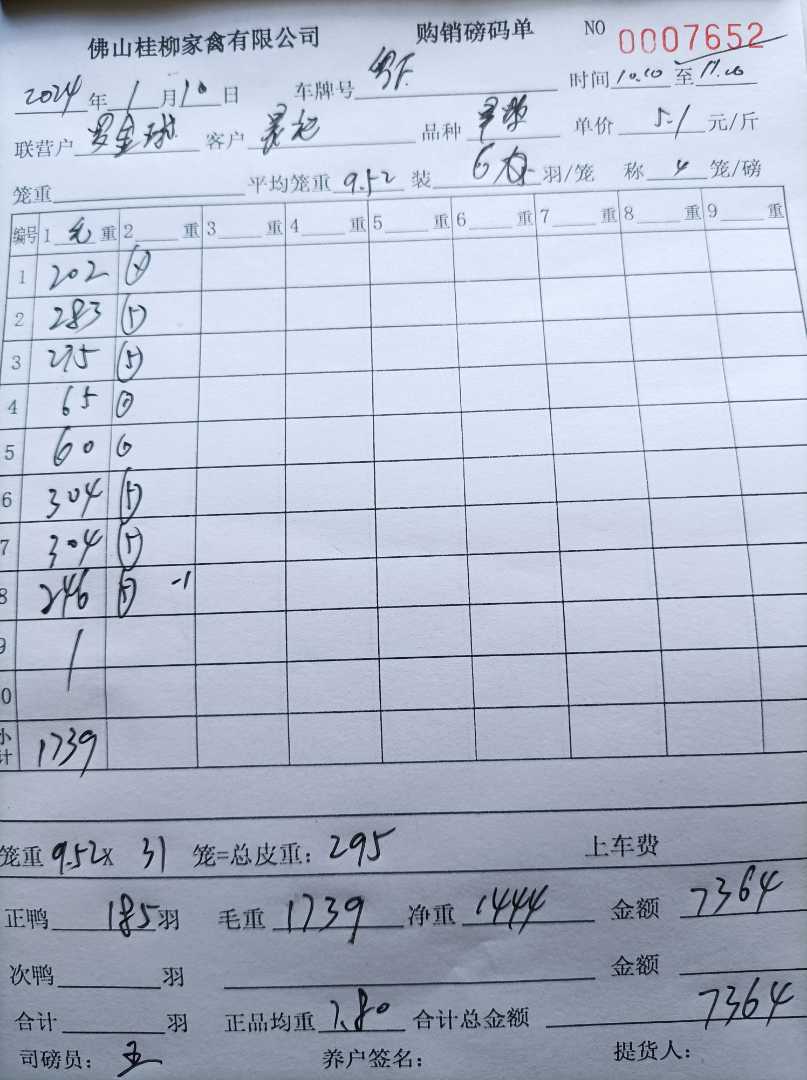 佛山桂柳家禽有限公司 购销磅码单 NO 0007652
2024年1月10日 车牌号 时间10.10至17.00
联营户罗金球 客户 品种 单价5.1元/斤
笼重 平均笼重9.52装6羽/笼 称4笼/磅
编号 1毛重 2 重 3 重 4 重 5 重 6 重 7 重 8 重 9 重
1 202
2 283 (5)
3 275 (5)
4 65
5 60
6 304 (5)
7 304 (5)
8 246 (5) -1
9
0
小计 1739
笼重9.52X 31 笼=总皮重:295 上车费
正鸭185羽 毛重1739净重1444 金额7364
次鸭 羽 金额
合计 羽 正品均重7.80 合计总金额 7364
司磅员: 养户签名: 提货人: